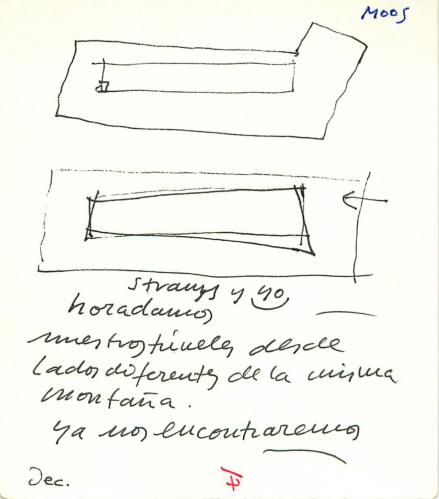 MOOS
Strauss y yo
horadamos
nuestros túneles desde
lados diferentes de la misma
montaña.
Ya nos encontraremos